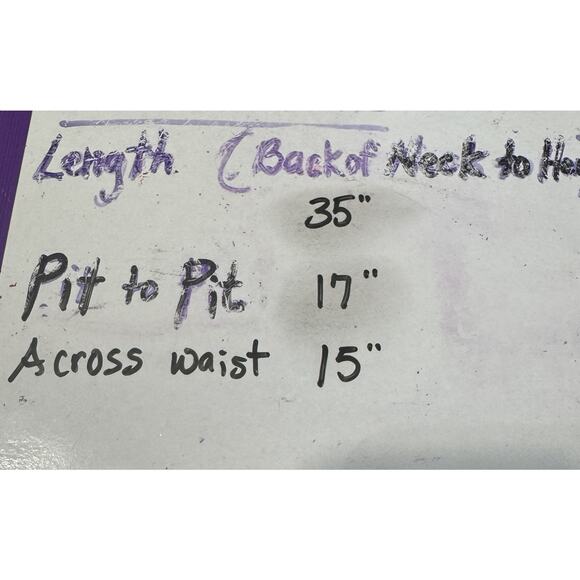 Length (Back of Neck to
35"
Pit to Pit 17"
Across waist 15"